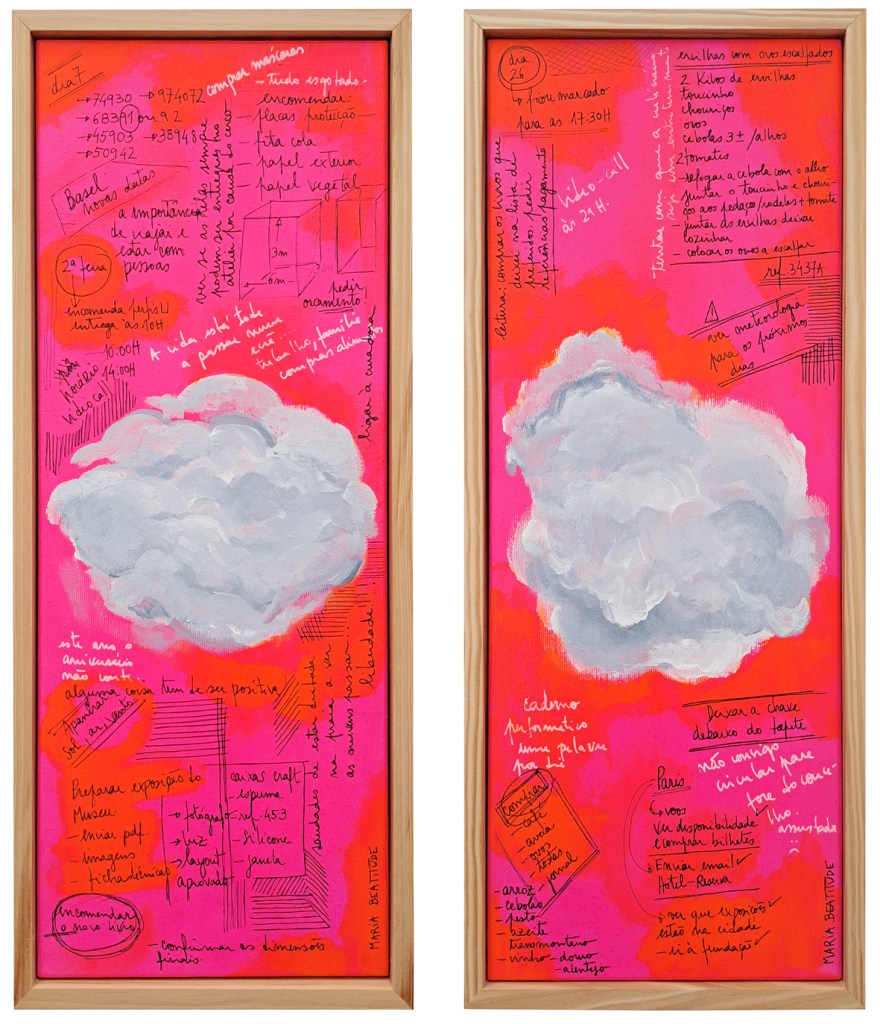 dia 7
→ 74930 → 974072
→ 68391 ou 92
→ 45903 → 38948
→ 50942
comprar máscaras
- tudo esgotado -
encomendar:
- placas protecção -
- fita cola
- papel exterior
- papel vegetal
Basel
novas datas
a importância
de viajar e
estar com
pessoas
ver se as telas sempre
podem ser entregues no
atelier por causa do covid
3m
6m
pedir
orçamento!
2ª feira
encomenda perfis U
entrega às 10H
A vida está toda
a passar num
ecrã:
trabalho, família
compras alimentos
10:00H
14:00H
horário
video call
ligar à curadora
este ano o
aniversário
não conta..
alguma coisa tem de ser positiva
Apanhar
sol, ar, vento
saudades de estar deitada
na praia a ver
as nuvens passar.
liberdade!
Preparar exposição do
Museu
- enviar pdf.
- imagens
- ficha técnica
→ fotógrafo
→ luz
→ layout
aprovado
caixas craft
- espuma
- ref. 453
- silicone
- janela
encomendar
o novo livro
- confirmar as dimensões
finais.
MARIA BEATITUDE
dia
26
↳ ficou marcado
para as 17:30H
leitura: comprar os livros que
deixei na lista de
preferidos. pedir
referências pagamento
video-call
às 21H.
tentar com que a culinária
seja um entretenimento
ervilhas com ovos escalfados
2 Kilos de ervilhas
toucinho
chouriços
ovos
cebolas 3± /alhos
2 tomates
- refogar a cebola com o alho
juntar o toucinho e chouri-
ço aos pedaços/rodelas + tomate
- juntar as ervilhas deixar
cozinhar
- colocar os ovos a escalfar
ref. 3437A
ver meteorologia
para os próximos
dias
caderno
performático
uma palavra
por dia
Deixar a chave
debaixo do tapete
não consigo
circular para
fora do conce-
lho.
assustada
:(
comprar
café
- aveia
- ovos
- rosas
- jornal
- arroz
- cebolas
- pesto
- azeite
transmontano
- vinho - douro
- alentejo
Paris
↳ voos
ver disponibilidade
e comprar bilhetes
Enviar email ✓
Hotel - Reserva
ver que exposições ✓
estão na cidade
- ir à fundação ✓
MARIA BEATITUDE